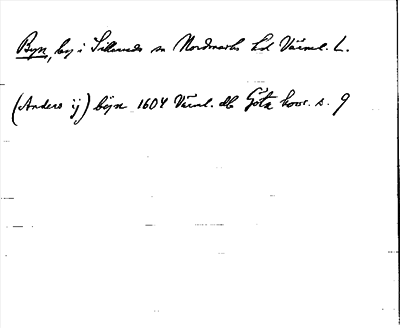 Byn, by i Silleruds sn Nordmarks hd Värml. L.
(Anders ij) byn 1604 Värml. db Göta kvor. s. 9